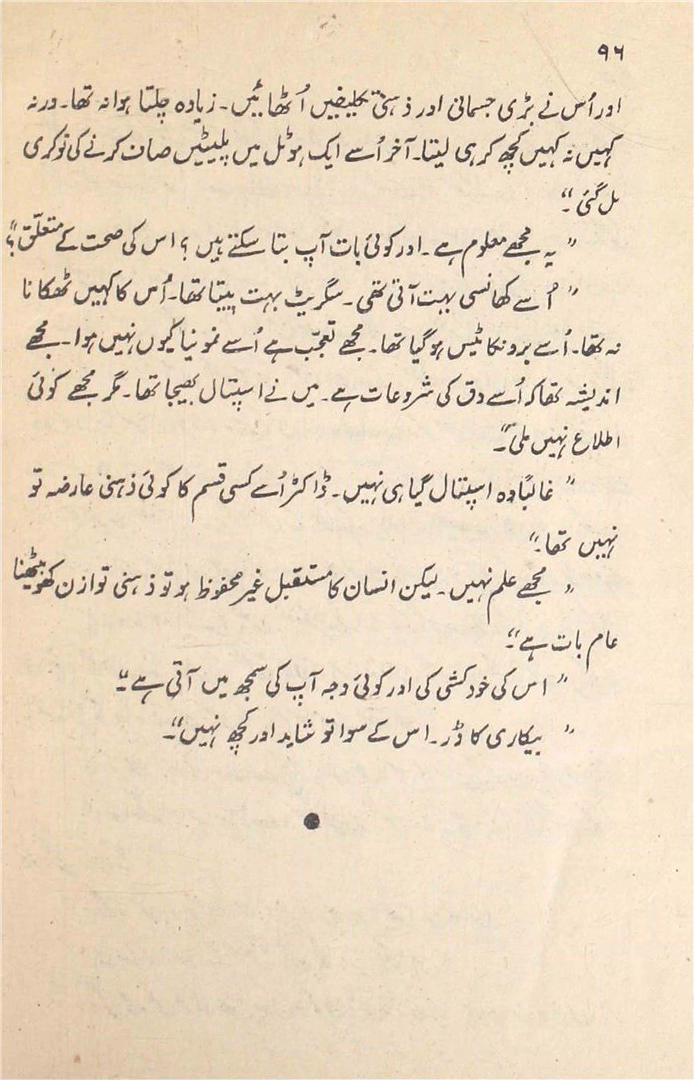 ۹۶
اور اُس نے بڑی جسمانی اور ذہنی تکلیفیں اُٹھائیں۔ زیادہ چلتا ہوا نہ تھا۔ ورنہ
کہیں نہ کہیں کچھ کر ہی لیتا۔ آخر اُسے ایک ہوٹل میں پلیٹیں صاف کرنے کی نوکری
مل گئی۔“
”یہ مجھے معلوم ہے۔ اور کوئی بات آپ بتا سکتے ہیں؟ اس کی صحت کے متعلّق؟“
”اُسے کھانسی بہت آتی تھی۔ سگریٹ بہت پیتا تھا۔ اُس کا کہیں ٹھکانا
نہ تھا۔ اُسے برونکائٹس ہو گیا تھا۔ مجھے تعجّب ہے اُسے نمونیا کیوں نہیں ہوا۔ مجھے
اندیشہ تھا کہ اُسے دق کی شروعات ہے۔ میں نے اسپتال بھیجا تھا۔ مگر مجھے کوئی
اطلاع نہیں ملی“۔
”غالباً وہ اسپتال گیا ہی نہیں۔ ڈاکٹر اُسے کسی قسم کا کوئی ذہنی عارضہ تو
نہیں تھا۔“
”مجھے علم نہیں۔ لیکن انسان کا مستقبل غیر محفوظ ہو تو ذہنی توازن کھو بیٹھنا
عام بات ہے“۔
”اس کی خودکشی کی اور کوئی وجہ آپ کی سمجھ میں آتی ہے“۔
”بیکاری کا ڈر۔ اس کے سوا تو شاید اور کچھ نہیں“۔